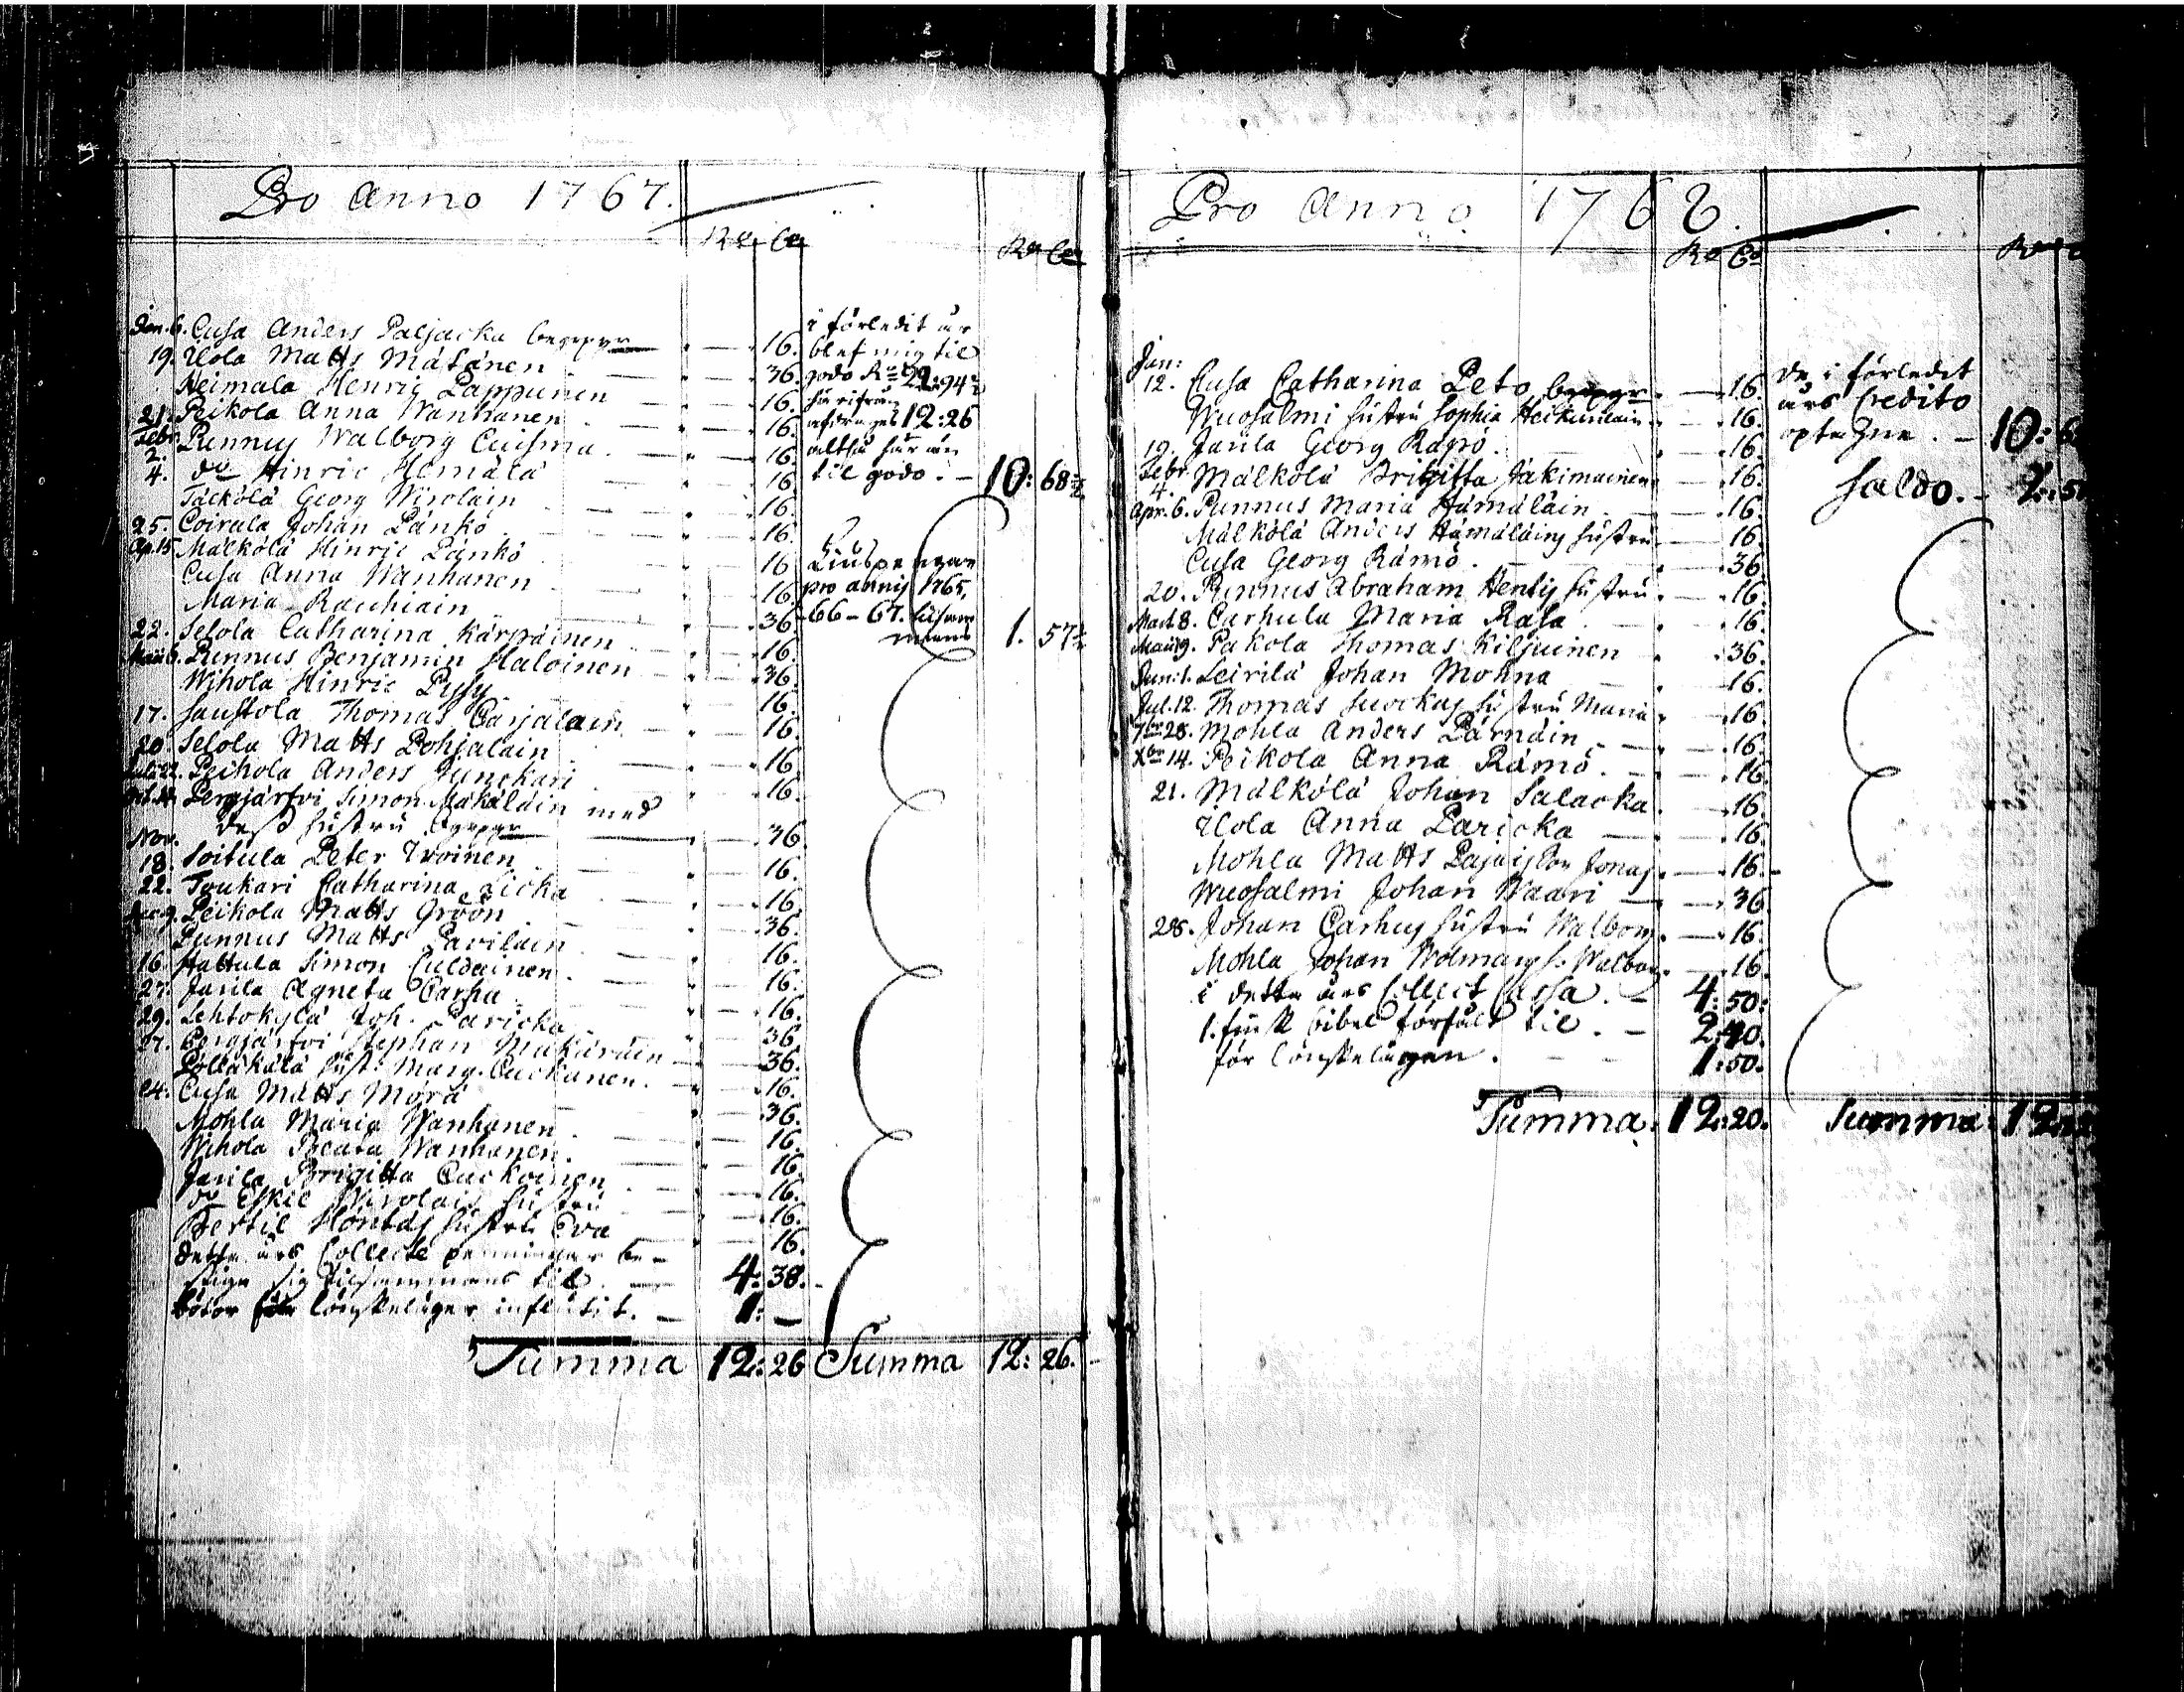 Pro Anno 1767.
Ro Co
Ro Co
Jan. 6. Cusa Anders Paljacka begrofn. 16.
19. Ilola Matts Mätänen 36.
Heimala Henric Pappunen 16.
21. Peikola Anna Wanhanen 16.
Febr. 2. Punnus Walborg Cuisma 16.
4. do Hinric Hemälä 16.
Täckölä Georg Wirolain 16.
25. Coirala Johan Pänkö 16.
Ap. 15. Mälkölä Hinric Pänkö 16
Cusa Anna Wanhanen 16.
Maria Rauhiain 36.
22. Selola Catharina Kärpäinen 16.
Maii 6. Punnus Benjamin Haloinen 36.
Wihola Hinric Pysy 16.
17. Saustola Thomas Carjalain 16.
20. Selola Matts Pohjalain 16.
Julii 22. Peikola Anders Junckari 16.
Pergjärfvi Simon Mäkäläin med
dess hustru 36.
Nov.
18. Soitula Peter Iwoinen 16.
22. Toukari Catharina Licka 16.
9. Peikola Matts Gröön 36.
Punnus Matts Pavilain 16.
16. Hattula Simon Culdainen 16.
27. Jaula Agneta Carha 16.
29. Lehtokylä Joh. Paricka 36.
Pergjärfvi Stephan Mukäräin 36.
Pölläkälä hust: Marg. Cuckanen. 16.
24. Cusa Matts Mörä 36.
Mohla Maria Wanhanen 16.
Wihola Beata Wanhanen. 16.
Jaula Brigitta Cuckoinen 16.
do Eskil Wirolais hustru 16.
Bertil Hontas hustru Eva 16.
detta års Collecte penningar be-
stiga sig tilsammans til 4: 38.
böter för löneskeläger influtit. 1: —
Summa 12: 26
i förledit år
blef mig til
godo Ro 22:94½
härifrån
afdrages 12:26
altså här än
til godo. 10: 68½
Liuspengar
pro annis 1765,
-66-67. tilsam
mans 1. 57½
Summa 12: 26.
Pro Anno 1768.
Ro Co
Jan:
12. Cusa Catharina Peto begrofn. 16.
Wuosalmi hustru Sophia Heickurlain 16.
19. Jaula Georg Rämö. 16.
Febr. 4. Mälkölä Brigitta Jakimainen 16.
Apr. 6. Punnus Maria Hämäläin 16.
Mälkölä Anders Hämäläins hustru 16.
Cusa Georg Rämö. 36.
20. Punnus Abraham Hentis hustru 16.
Mart. 8. Carhula Maria Rasa 16.
Maii 19. Pakola Thomas Kiljuinen 36.
Jun: 1. Leirilä Johan Mohna 16.
Jul. 12. Thomas Suockas hustru Maria 16.
7br 28. Mohla Anders Pärnäin 16.
Xbr 14. Peikola Anna Rämö. 16.
21. Mälkölä Johan Salacka. 16.
Ilola Anna Paricka 16.
Mohla Matts Pajais son Jonas. 16.
Wuosalmi Johan Waari 36.
28. Johan Carhus hustru Walborg. 16.
Mohla Johan Wolmans h: Walborg 16.
i detta års Collect Cassa. 4: 50:
1. finsk bibel försåld til. 2: 40.
för löneskelägen. 1: 50.
Summa. 12: 20.
De i förledit
års Credito
optagne. 10:
Saldo.
Summa: 12: